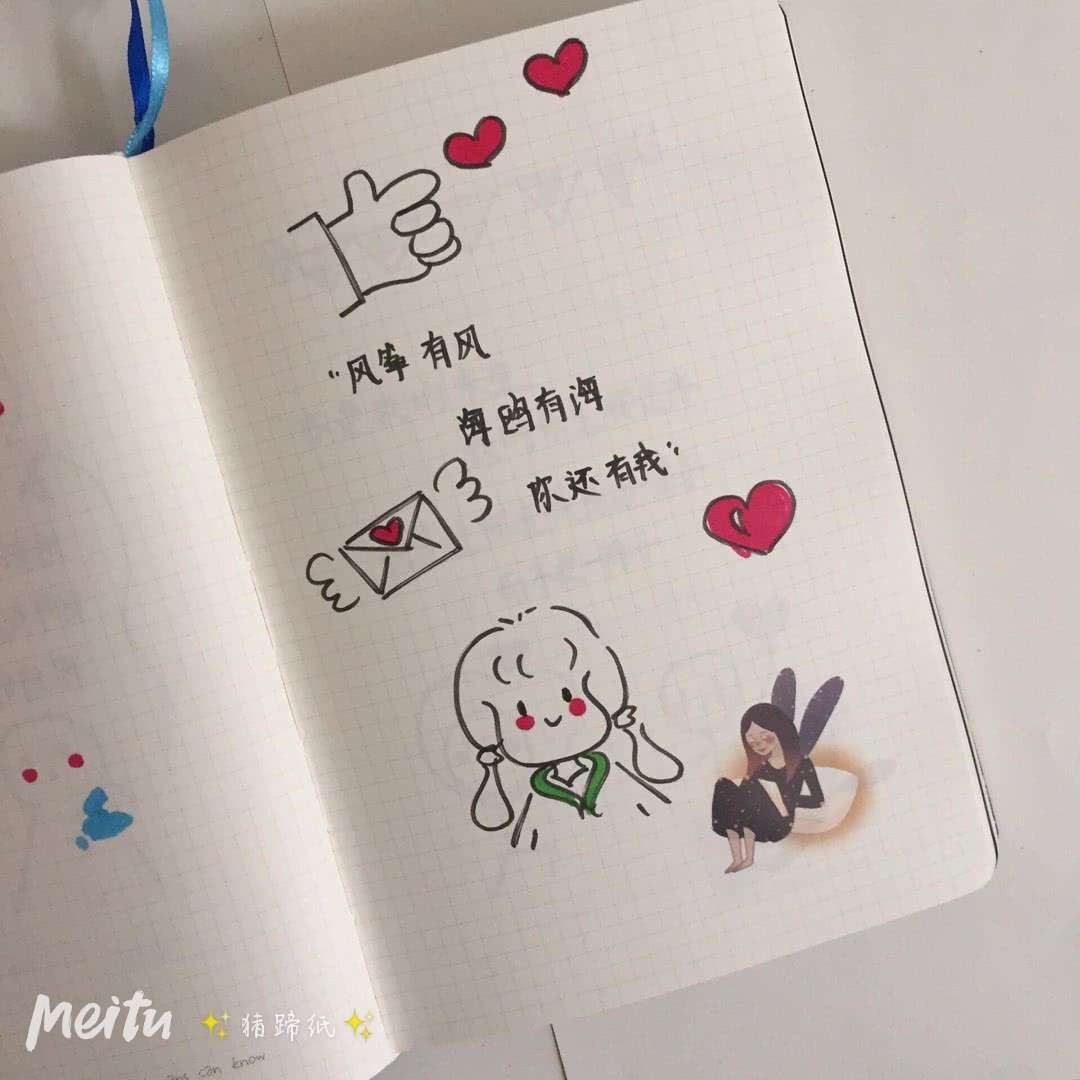 “风筝有风
海鸥有海
你还有我”
Meitu ✨猪蹄纸✨
can know